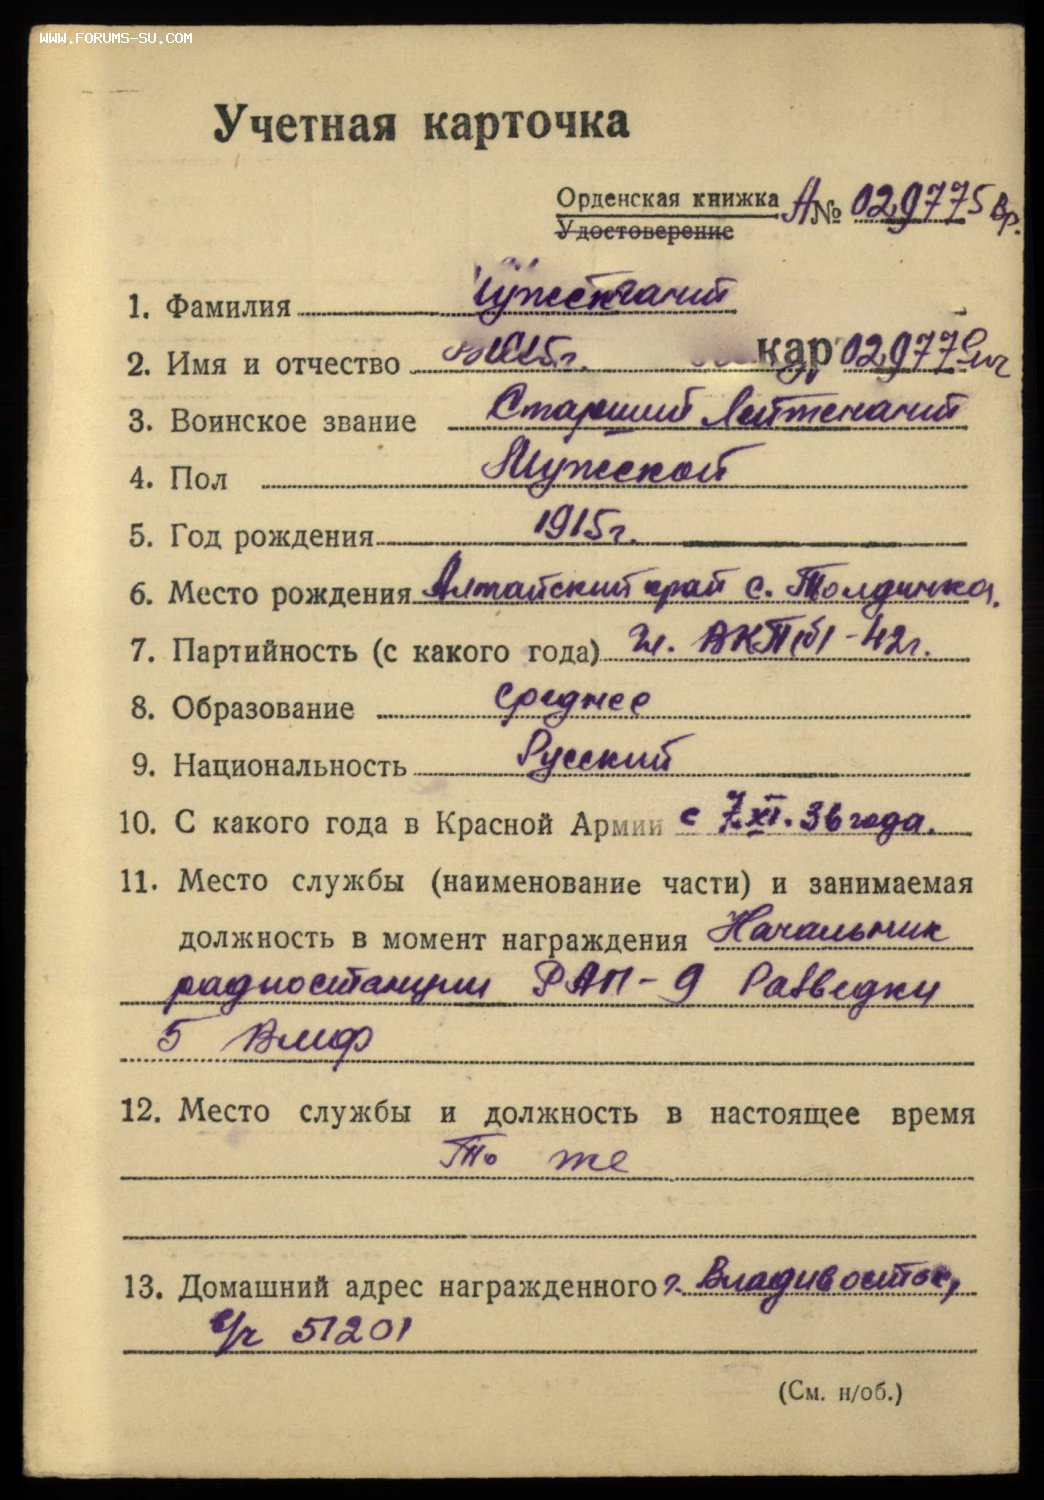 WWW.FORUMS-SU.COM
Учетная карточка
Орденская книжка А № 029775 Вр.
Удостоверение
1. Фамилия
2. Имя и отчество 1915г. кар 02977
3. Воинское звание Старший Лейтенант
4. Пол Мужской
5. Год рождения 1915г.
6. Место рождения Алтайский край с. Толдинка.
7. Партийность (с какого года) Чл. ВКП(б) - 42г.
8. Образование среднее
9. Национальность Русский
10. С какого года в Красной Армии с 7.XI.36 года.
11. Место службы (наименование части) и занимаемая
должность в момент награждения Начальник
радиостанции РАП-9 Разведки
5 ВМФ
12. Место службы и должность в настоящее время
То же
13. Домашний адрес награжденного г. Владивосток,
в/ч 51201
(См. н/об.)